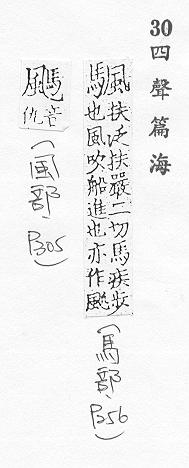 30 四聲篇海
颿 扶泛扶嚴二切馬疾步也風吹船進也亦作
(馬部, P356)
音
(風部, P305)